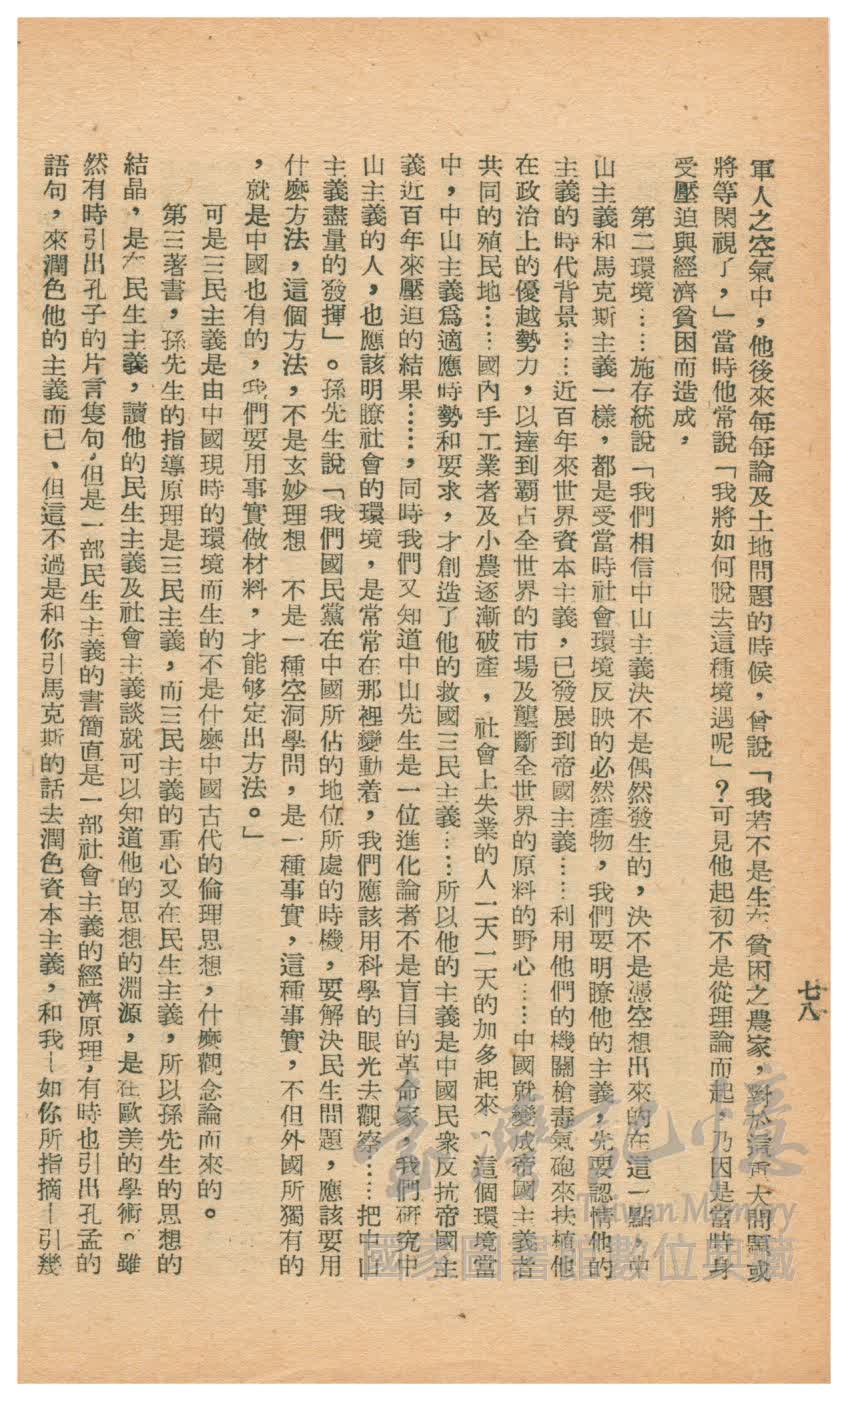 七八
軍人之空氣中，他後來每每論及土地問題的時候，曾說「我若不是生在貧困之農家，對於這當大問題或
將等閑視了，」當時他常說「我將如何脫去這種境遇呢」？可見他起初不是從理論而起，乃因是當時身
受壓迫與經濟貧困而造成，
第二環境……施存統說「我們相信中山主義決不是偶然發生的，決不是憑空想出來的在這一點，中
山主義和馬克斯主義一樣，都是受當時社會環境反映的必然產物，我們要明瞭他的主義，先要認情他的
主義的時代背景……近百年來世界資本主義，已發展到帝國主義……利用他們的機關槍毒氣砲來扶植他
在政治上的優越勢力，以達到霸占全世界的市場及壟斷全世界的原料的野心……中國就變成帝國主義者
共同的殖民地……國內手工業者及小農逐漸破產，社會上失業的人一天一天的加多起來、這個環境當
中，中山主義爲適應時勢和要求，才創造了他的救國三民主義……所以他的主義是中國民衆反抗帝國主
義近百年來壓迫的結果……，同時我們又知道中山先生是一位進化論者不是盲目的革命家，我們研究中
山主義的人，也應該明瞭社會的環境，是常常在那裡變動着，我們應該用科學的眼光去觀察……把中山
主義盡量的發揮」。孫先生說「我們國民黨在中國所佔的地位所處的時機，要解決民生問題，應該要用
什麽方法，這個方法，不是玄妙理想　不是一種空洞學問，是一種事實，這種事實，不但外國所獨有的
，就是中國也有的，我們要用事實做材料，才能够定出方法。」
可是三民主義是由中國現時的環境而生的不是什麽中國古代的倫理思想，什麽觀念論而來的。
第三著書，孫先生的指導原理是三民主義，而三民主義的重心又在民生主義，所以孫先生的思想的
結晶，是在民生主義，讀他的民生主義及社會主義談就可以知道他的思想的淵源，是在歐美的學術。雖
然有時引出孔子的片言隻句，但是一部民生主義的書簡直是一部社會主義的經濟原理，有時也引出孔孟的
語句，來潤色他的主義而已、但這不過是和你引馬克斯的話去潤色資本主義，和我—如你所指摘—引幾
臺灣記憶
Taiwan Memory
國家圖書館數位典藏